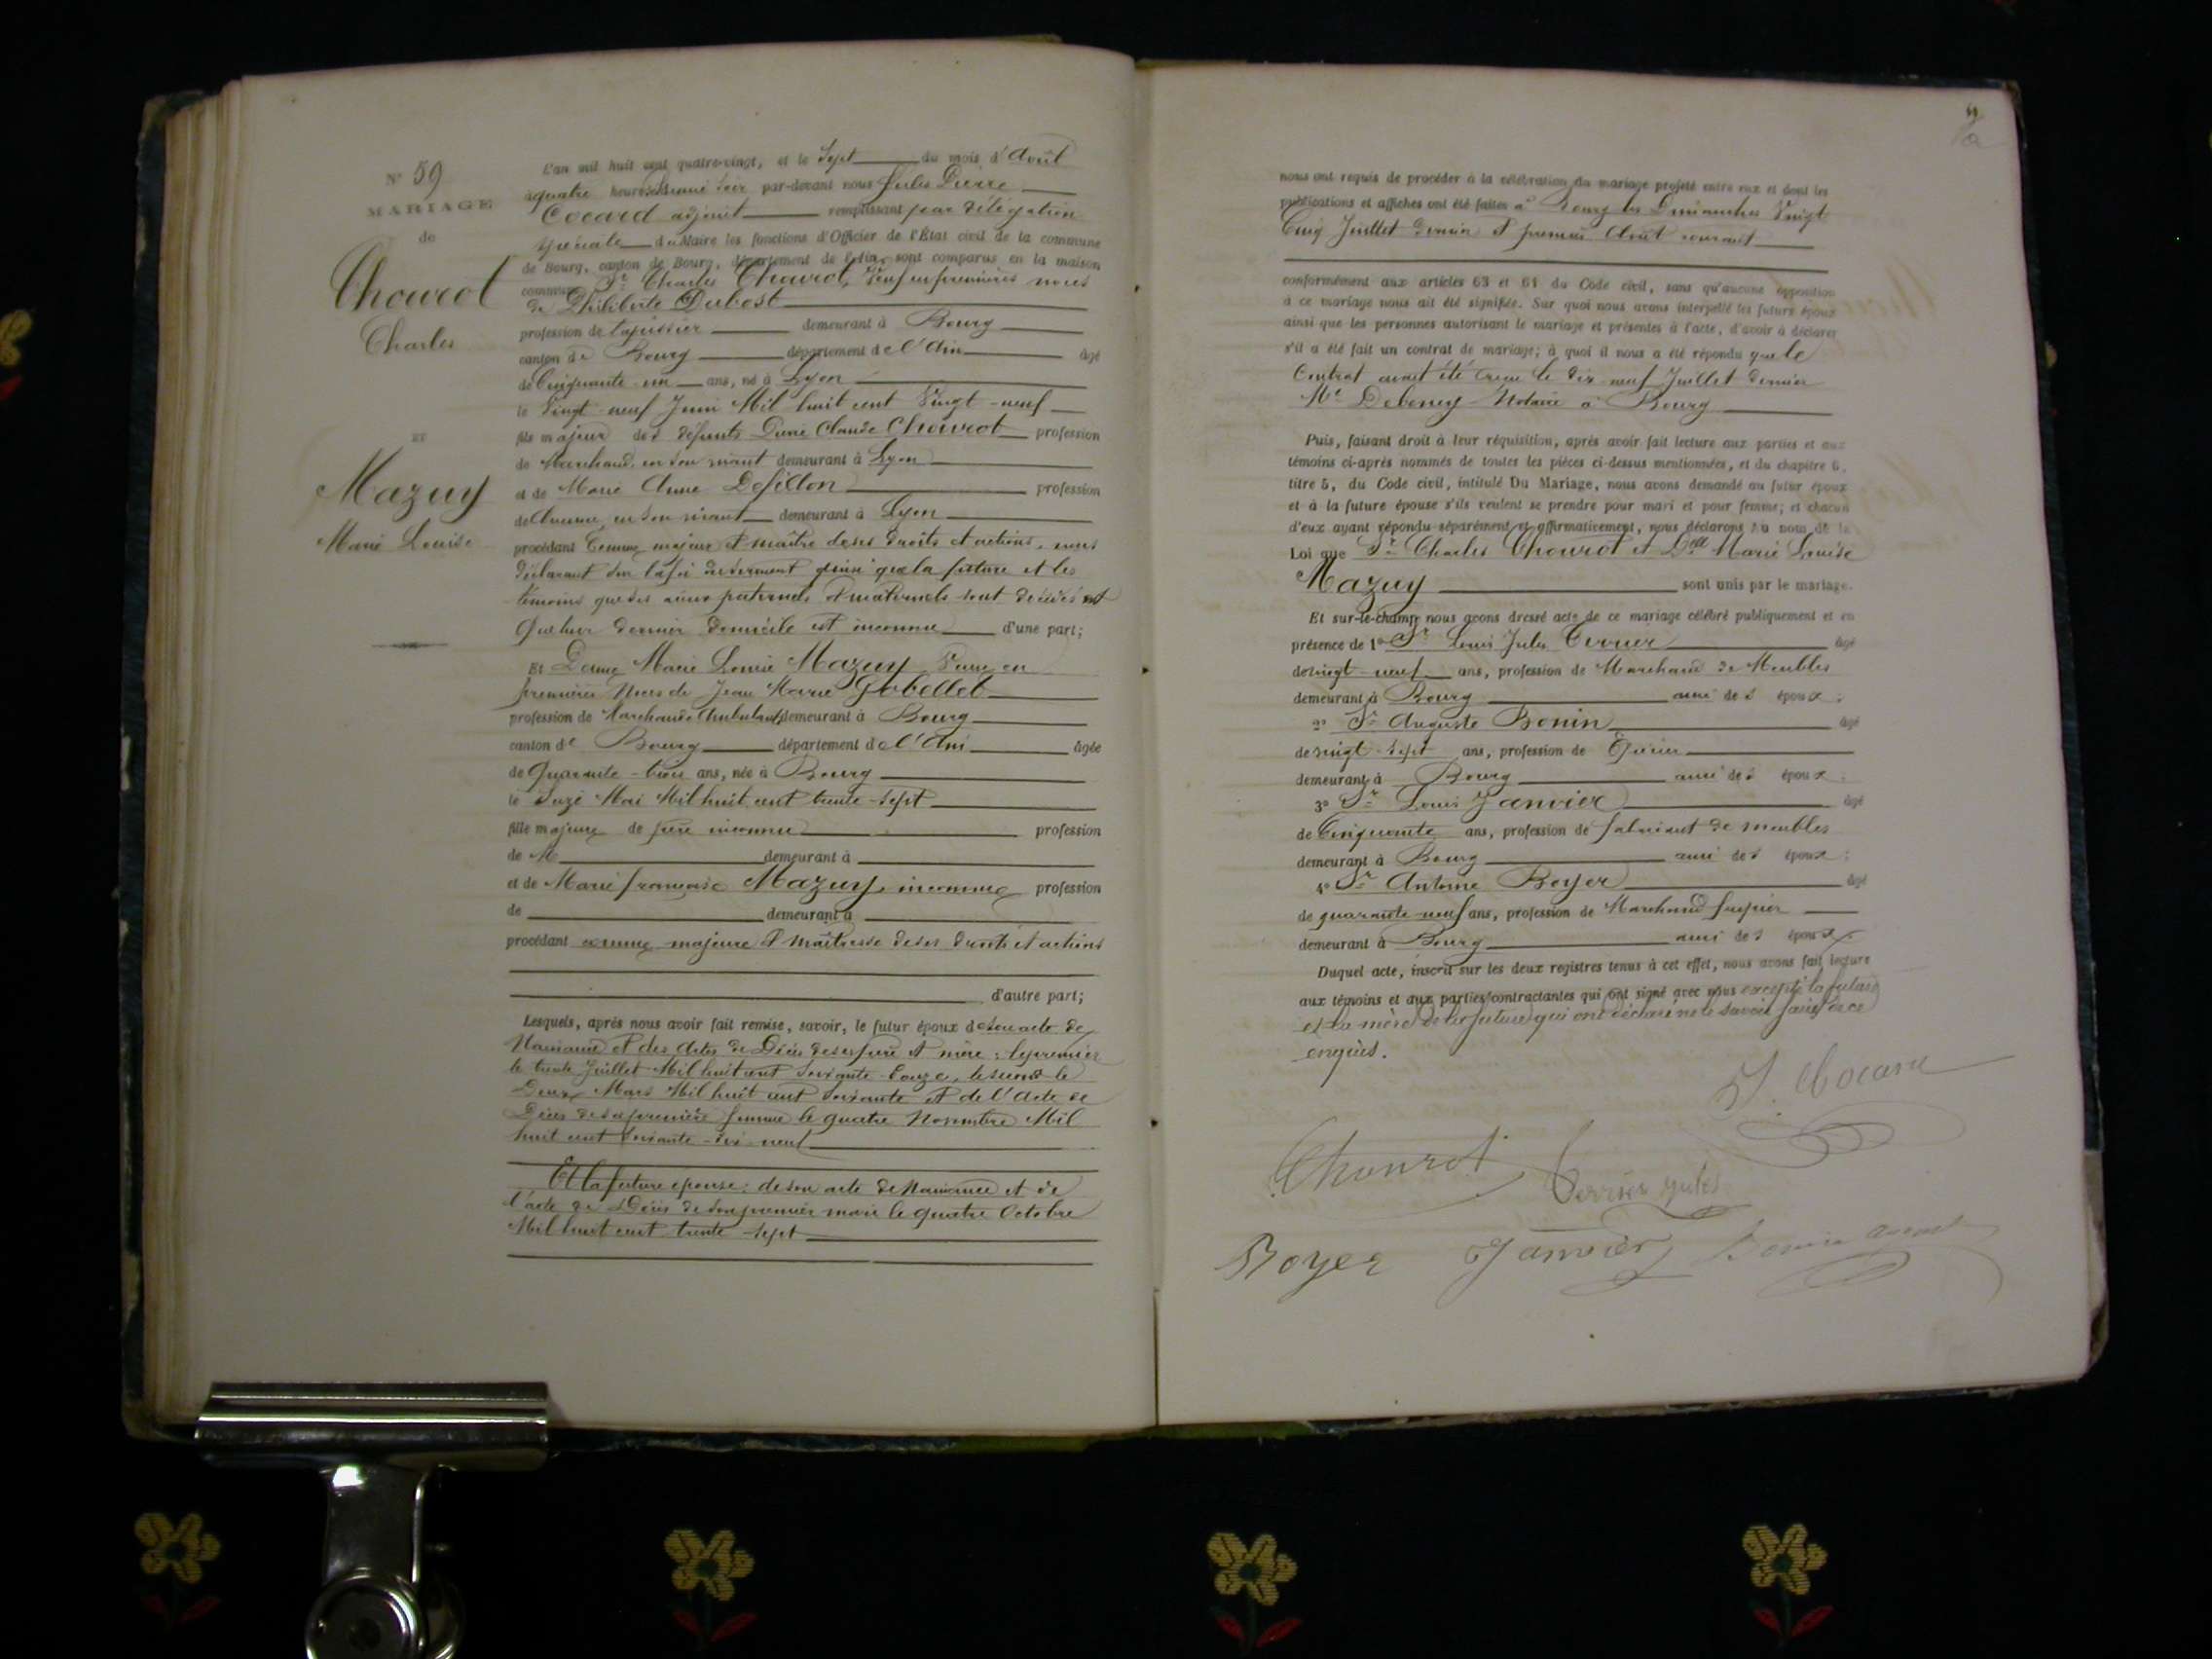 N° 59
MARIAGE
de
Chourot
Charles
ET
Mazuy
Marie Louise
L'an mil huit cent quatre-vingt, et le Sept du mois d'Août
à quatre heures du soir par-devant nous Jules Pierre
Cocard adjoint remplissant par délégation
spéciale du Maire les fonctions d'Officier de l'État civil de la commune
de Bourg, canton de Bourg, département de l'Ain, sont comparus en la maison
commune Sr Charles Chourot, Veuf en premières noces
de Philiberte Dubost
profession de tapissier demeurant à Bourg
canton de Bourg département de l'Ain âgé
de Cinquante-un ans, né à Lyon
le Vingt-neuf Juin Mil huit cent Vingt-neuf
fils majeur des défunts Claude Chourot profession
de Marchand, en son vivant demeurant à Lyon
et de Marie Anne Defillon profession
de en son vivant demeurant à Lyon
procédant Comme majeur et maître de ses droits et actions, nous
déclarant sous la foi du serment ainsi que la future et les
témoins que ses aïeux paternels et maternels sont décédés et
que leur dernier domicile est inconnu d'une part;
Et Dame Marie Louise Mazuy Veuve en
premières Noces de Jean Marie Gobellet
profession de Marchande Ambulante demeurant à Bourg
canton de Bourg département de l'Ain âgée
de Quarante-trois ans, née à Bourg
le Onze Mai Mil huit cent trente-sept
fille majeure de père inconnu profession
de M demeurant à
et de Marie françoise Mazuy, inconnue profession
de demeurant à
procédant comme majeure et Maîtresse de ses droits et actions
d'autre part;
Lesquels, après nous avoir fait remise, savoir, le futur époux de son acte de
Naissance et des Actes de Décès de ses père et mère: le premier
le trente Juillet Mil huit cent soixante-douze, le second le
Deux Mars Mil huit cent soixante et de l'Acte de
Décès de sa première femme le quatre Novembre Mil
huit cent soixante-dix-neuf
Et la future épouse: de son acte de Naissance et de
l'acte de Décès de son premier mari le quatre Octobre
Mil huit cent trente-sept
nous ont requis de procéder à la célébration du mariage projeté entre eux et dont les
publications et affiches ont été faites à Bourg les Dimanches Vingt
Cinq Juillet dernier et premier Août courant
conformément aux articles 63 et 64 du Code civil, sans qu'aucune opposition
à ce mariage nous ait été signifiée. Sur quoi nous avons interpellé les futurs époux
ainsi que les personnes autorisant le mariage et présentes à l'acte, d'avoir à déclarer
s'il a été fait un contrat de mariage; à quoi il nous a été répondu que le
Contrat avait été reçu le dix-neuf Juillet dernier
Me Debeney Notaire à Bourg
Puis, faisant droit à leur réquisition, après avoir fait lecture aux parties et aux
témoins ci-après nommés de toutes les pièces ci-dessus mentionnées, et du chapitre 6,
titre 5, du Code civil, intitulé Du Mariage, nous avons demandé au futur époux
et à la future épouse s'ils veulent se prendre pour mari et pour femme; et chacun
d'eux ayant répondu séparément et affirmativement, nous déclarons au nom de la
Loi que Sr Charles Chourot et Delle Marie Louise
Mazuy sont unis par le mariage.
Et sur-le-champ nous avons dressé acte de ce mariage célébré publiquement et en
présence de 1° Sr Louis Jules âgé
de vingt-neuf ans, profession de Marchand de Meubles
demeurant à Bourg ami des époux;
2° Sr Auguste Bonin âgé
de vingt-sept ans, profession de
demeurant à Bourg ami des époux;
3° Sr Louis Janvier âgé
de Cinquante ans, profession de fabricant de meubles
demeurant à Bourg ami des époux;
4° Sr Antoine Boyer âgé
de quarante-neuf ans, profession de Marchand fripier
demeurant à Bourg ami des époux.
Duquel acte, inscrit sur les deux registres tenus à cet effet, nous avons fait lecture
aux témoins et aux parties contractantes qui ont signé avec nous excepté la future
et la mère de la future qui ont déclaré ne le savoir faire de ce
enquis.
J. Cocard
Chourot
Boyer
Janvier